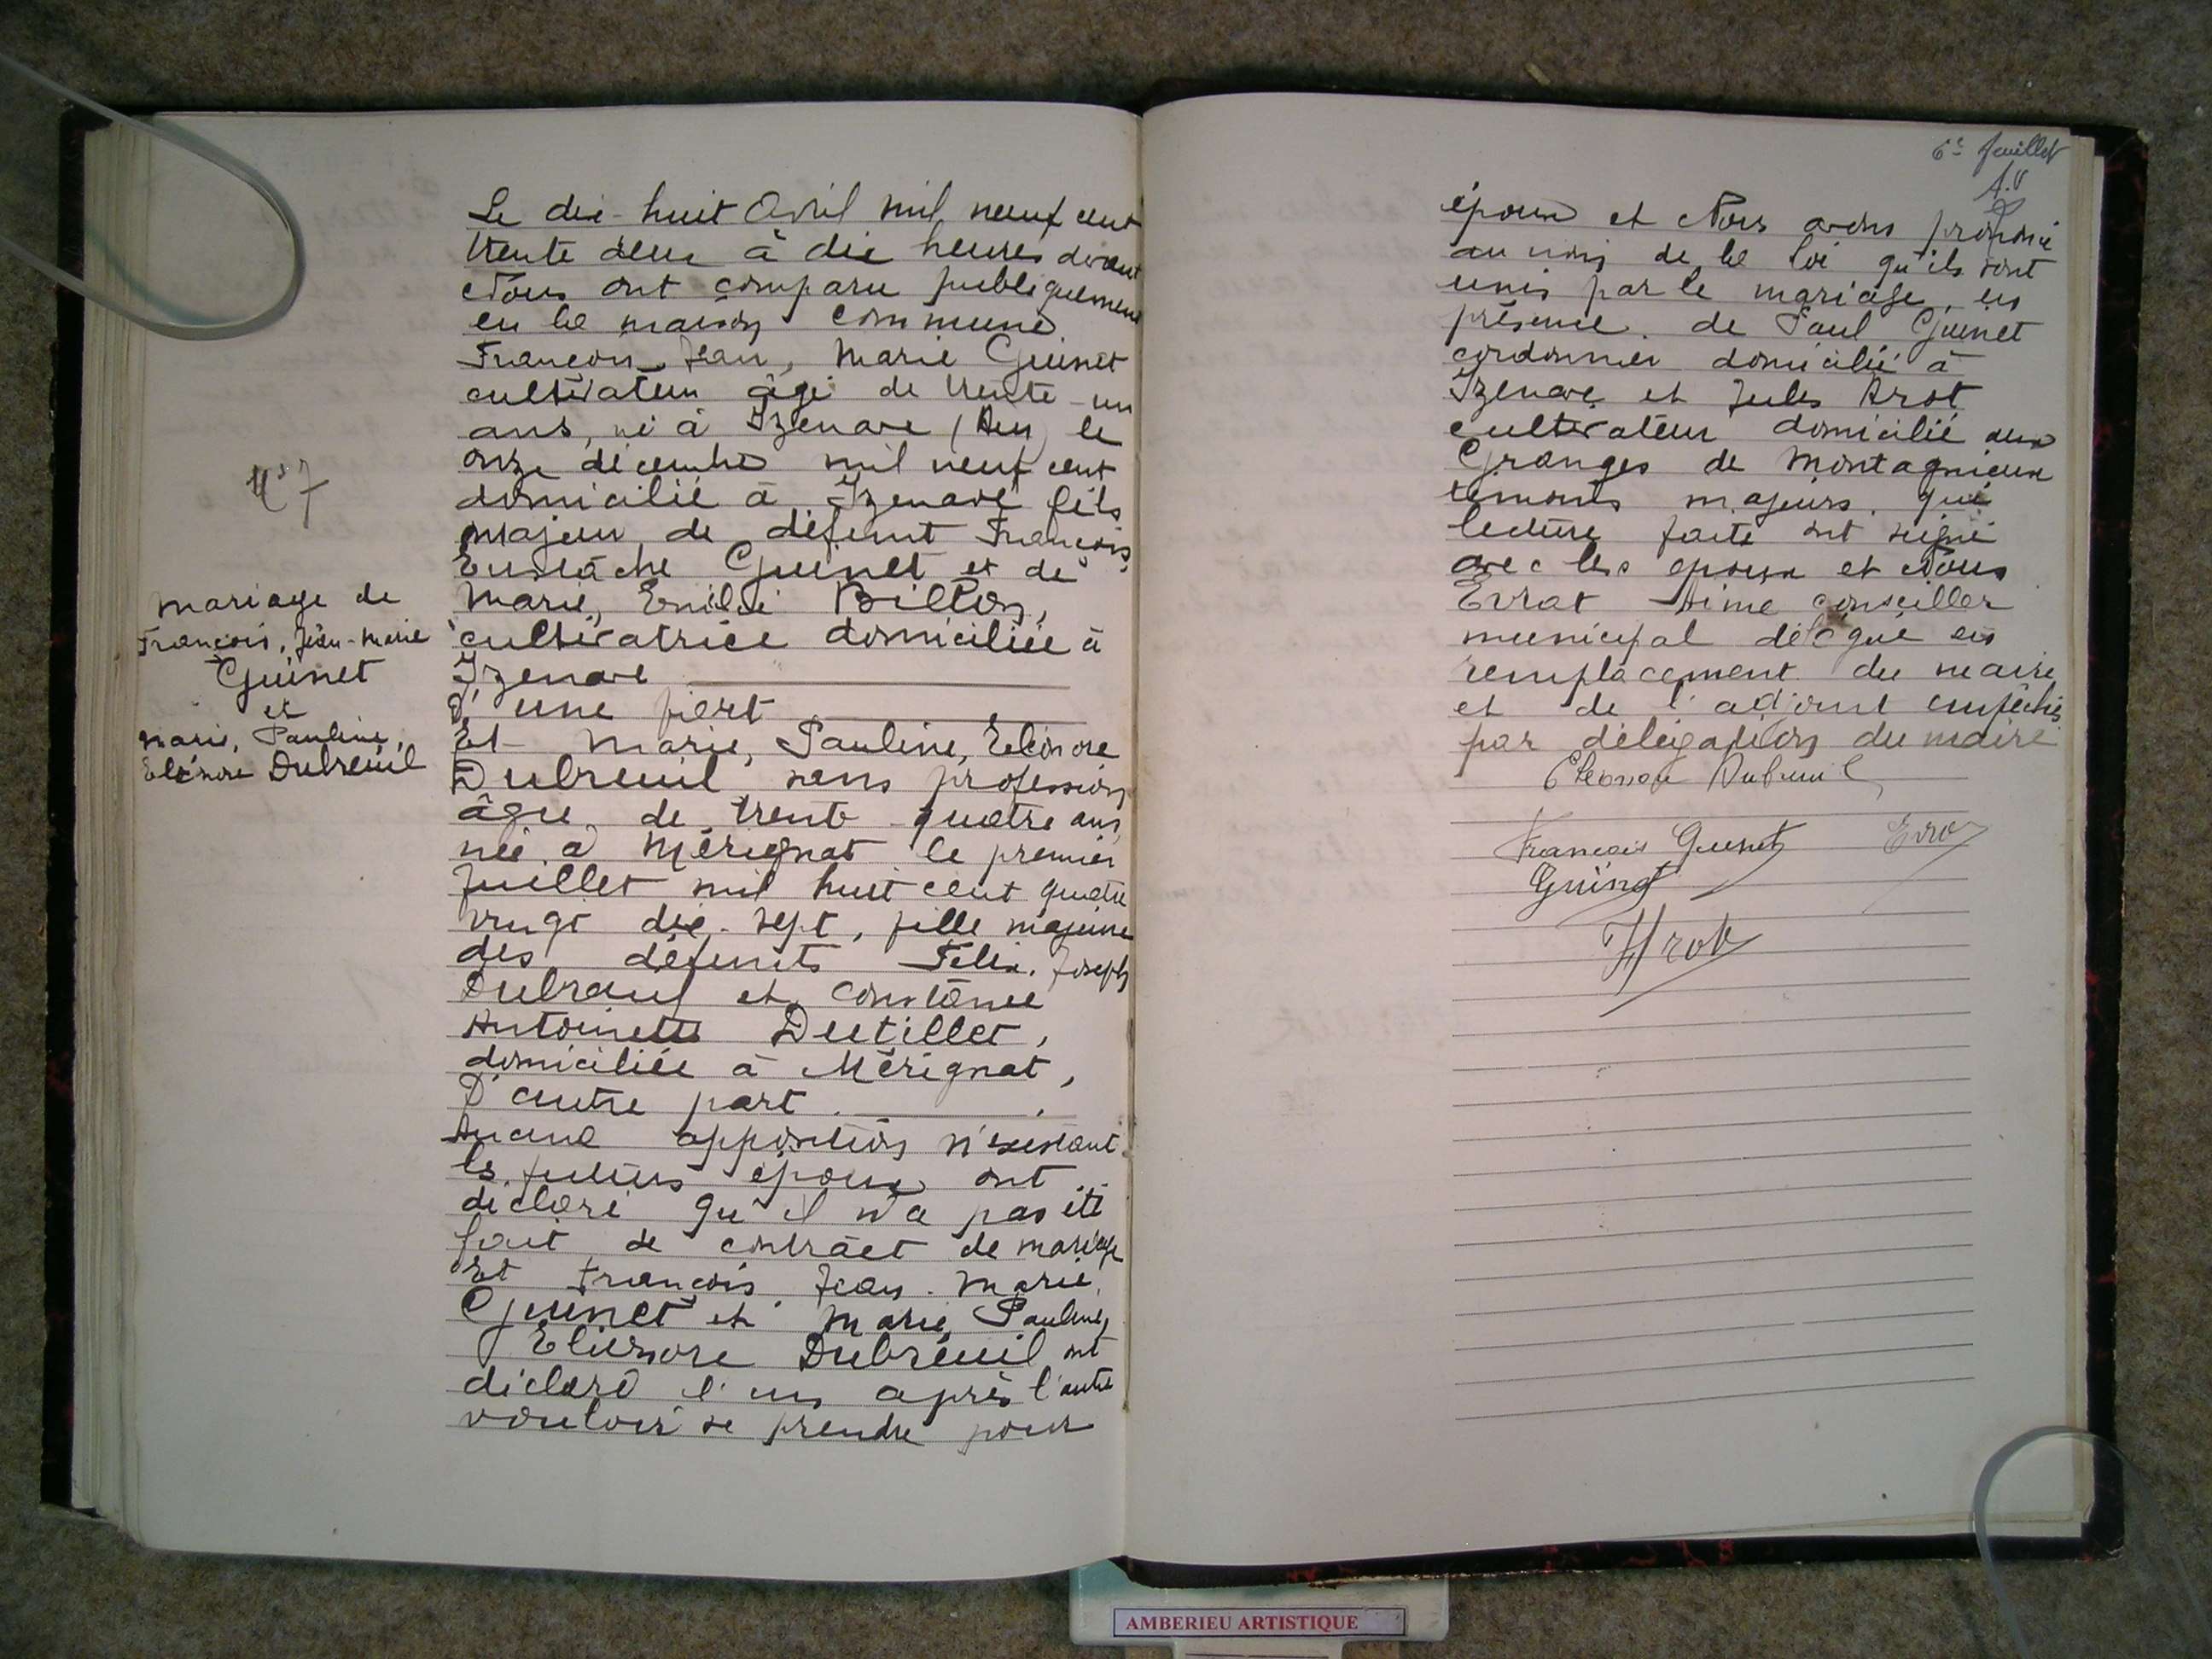 N° 7
mariage de
François, Jean-Marie
Guinet
et
Marie, Pauline,
Eléonore Dubreuil
Le dix-huit Avril mil neuf cent
trente deux à dix heures devant
Nous ont comparu publiquement
en la maison commune
François, Jean, Marie Guinet
cultivateur âgé de trente-un
ans, né à Izenave (Ain) le
onze décembre mil neuf cent
domicilié à Izenave fils
majeur de défunt François
Eustache Guinet et de
Marie, Emilie Billon,
cultivatrice domiciliée à
Izenave
D'une part
Et Marie, Pauline, Eléonore
Dubreuil sans profession
âgée de trente-quatre ans,
née à Mérignat le premier
Juillet mil huit cent quatre
vingt dix-sept, fille majeure
des défunts Félix, Joseph
Dubreuil et Constance
Antoinette Dutillet,
domiciliée à Mérignat,
D'autre part.
Aucune opposition n'existant
les futurs époux ont
déclaré qu'il n'a pas été
fait de contract de mariage
Et François, Jean-Marie,
Guinet et Marie, Pauline,
Eléonore Dubreuil ont
déclaré l'un après l'autre
vouloir se prendre pour
6e feuillet
A.V
époux et Nous avons prononcé
au nom de la loi qu'ils sont
unis par le mariage, en
présence de Paul Guinet
cordonnier domicilié à
Izenave et Jules Arot
cultivateur domicilié aux
Granges de Montagnieux
témoins majeurs, qui
lecture faite ont signé
avec les époux et Nous
Evrat Aimé conseiller
municipal délégué en
remplacement du maire
et de l'adjoint empêchés
par délégation du maire
Eléonore Dubreuil
François Guinet Evra
Guinet
J Arot
AMBERIEU ARTISTIQUE